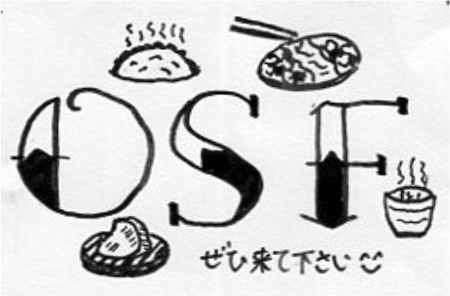 OSF
ぜひ来て下さい